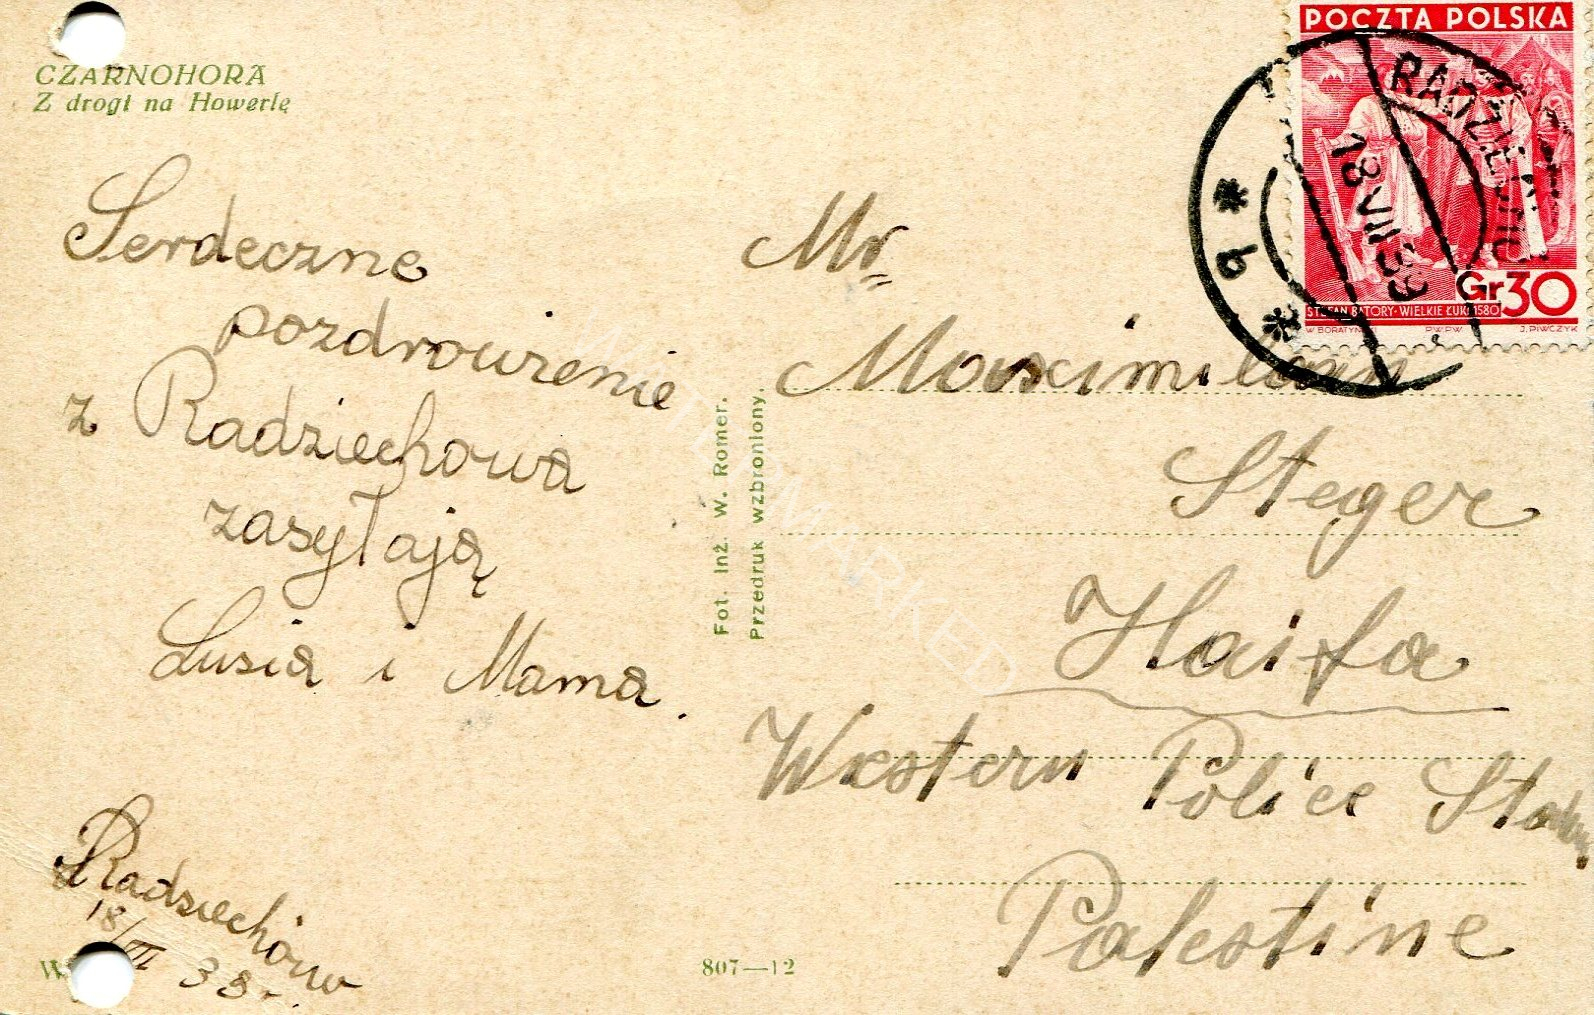 CZARNOHORA
Z drogi na Howerlę
Serdeczne
pozdrowienie
z Radziechowa
zasyłają
Lusia i Mama.
Radziechów
18/VII 38.
Fot. Inż. W. Romer.
Przedruk wzbroniony.
807—12
POCZTA POLSKA
Gr 30
STEFAN BATORY·WIELKIE ŁUKI 1580
W. BORATYŃ
P.W.P.W.
J. PIWCZYK
18 VII 39
b
Mr
Maximilian
Steger
Haifa
Western Police
Palestine